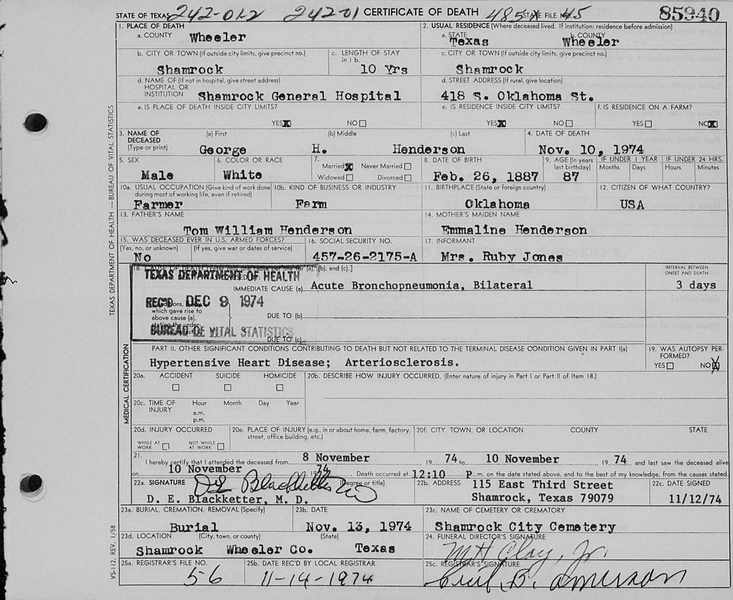 STATE OF TEXAS 242-01-2 242-01 CERTIFICATE OF DEATH STATE FILE NO. 85940
1. PLACE OF DEATH 2. USUAL RESIDENCE (Where deceased lived. If institution: residence before admission)
a. COUNTY Wheeler a. STATE Texas b. COUNTY Wheeler
b. CITY OR TOWN (If outside city limits, give precinct no.) c. LENGTH OF STAY in 1 b. c. CITY OR TOWN (If outside city limits, give precinct no.)
Shamrock 10 Yrs Shamrock
d. NAME OF (If not in hospital, give street address) HOSPITAL OR INSTITUTION Shamrock General Hospital d. STREET ADDRESS (If rural, give location) 418 S. Oklahoma St.
e. IS PLACE OF DEATH INSIDE CITY LIMITS? e. IS RESIDENCE INSIDE CITY LIMITS? f. IS RESIDENCE ON A FARM?
YES NO YES NO YES NO
3. NAME OF DECEASED (Type or print) (a) First (b) Middle (c) Last 4. DATE OF DEATH
George H. Henderson Nov. 10, 1974
5. SEX 6. COLOR OR RACE 7. Married Never Married Widowed Divorced 8. DATE OF BIRTH 9. AGE (In years last birthday) IF UNDER 1 YEAR IF UNDER 24 HRS.
Months Days Hours Minutes
Male White Feb. 26, 1887 87
10a. USUAL OCCUPATION (Give kind of work done during most of working life, even if retired) 10b. KIND OF BUSINESS OR INDUSTRY 11. BIRTHPLACE (State or foreign country) 12. CITIZEN OF WHAT COUNTRY?
Farmer Farm Oklahoma USA
13. FATHER'S NAME 14. MOTHER'S MAIDEN NAME
Tom William Henderson Emmaline Henderson
15. WAS DECEASED EVER IN U.S. ARMED FORCES? 16. SOCIAL SECURITY NO. 17. INFORMANT
(Yes, no, or unknown) (If yes, give war or dates of service)
No 457-26-2175-A Mrs. Ruby Jones
TEXAS DEPARTMENT OF HEALTH
REC'D DEC 9 1974
BUREAU OF VITAL STATISTICS
INTERVAL BETWEEN ONSET AND DEATH
IMMEDIATE CAUSE (a) Acute Bronchopneumonia, Bilateral 3 days
which gave rise to above cause (a), DUE TO (b)
DUE TO (c)
PART II. OTHER SIGNIFICANT CONDITIONS CONTRIBUTING TO DEATH BUT NOT RELATED TO THE TERMINAL DISEASE CONDITION GIVEN IN PART I(a) 19. WAS AUTOPSY PERFORMED?
Hypertensive Heart Disease; Arteriosclerosis. YES NO
20a. ACCIDENT SUICIDE HOMICIDE 20b. DESCRIBE HOW INJURY OCCURRED. (Enter nature of injury in Part I or Part II of Item 18.)
20c. TIME OF INJURY Hour Month Day Year
a.m.
p.m.
20d. INJURY OCCURRED 20e. PLACE OF INJURY (e.g., in or about home, farm, factory, street, office building, etc.) 20f. CITY, TOWN, OR LOCATION COUNTY STATE
WHILE AT WORK NOT WHILE AT WORK
21. I hereby certify that I attended the deceased from 8 November 19 74 to 10 November 19 74 and last saw the deceased alive
on 10 November 19 74 Death occurred at 12:10 P m. on the date stated above, and to the best of my knowledge, from the causes stated.
22a. SIGNATURE DE Blackketter (Degree or title) 22b. ADDRESS 115 East Third Street 22c. DATE SIGNED
D. E. Blackketter, M. D. Shamrock, Texas 79079 11/12/74
23a. BURIAL, CREMATION, REMOVAL (Specify) 23b. DATE 23c. NAME OF CEMETERY OR CREMATORY
Burial Nov. 13, 1974 Shamrock City Cemetery
23d. LOCATION (City, town, or county) (State) 24. FUNERAL DIRECTOR'S SIGNATURE
Shamrock Wheeler Co. Texas Clay, Jr.
25a. REGISTRAR'S FILE NO. 25b. DATE REC'D BY LOCAL REGISTRAR 25c. REGISTRAR'S SIGNATURE
56 11-14-1974
TEXAS DEPARTMENT OF HEALTH — BUREAU OF VITAL STATISTICS
MEDICAL CERTIFICATION
VS-112, REV. 1/58